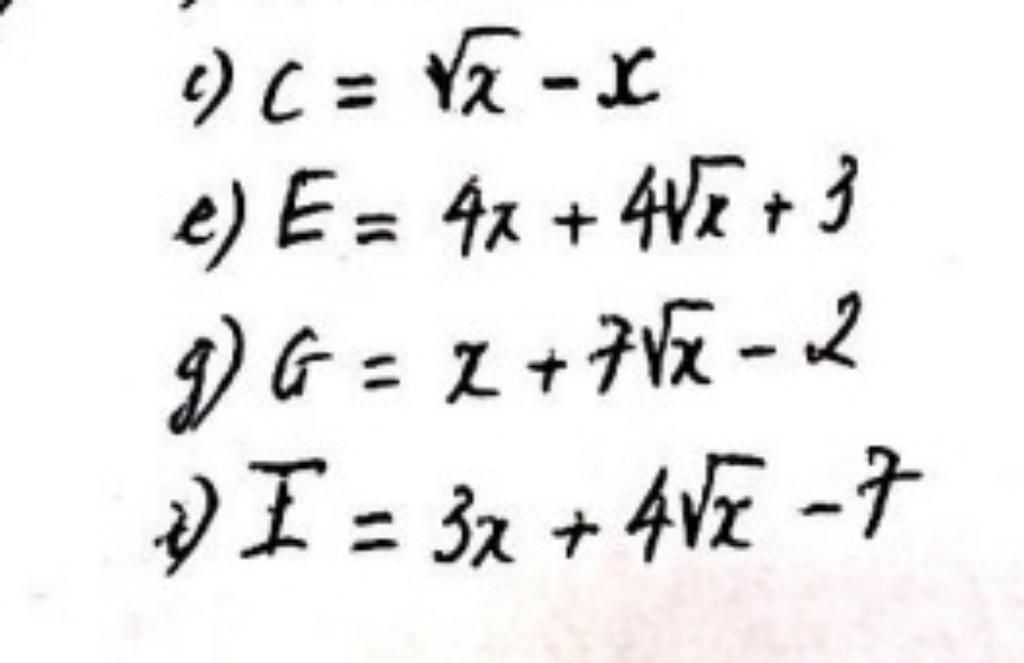 c) C = √x - x
e) E = 4x + 4√x + 3
g) G = x + 7√x - 2
i) I = 3x + 4√x - 7